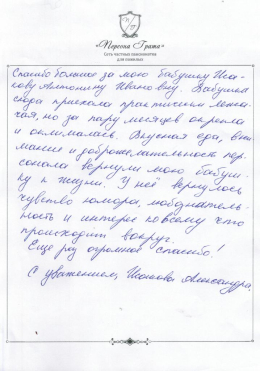 «Персона Грата»
Сеть частных пансионатов
для пожилых
Спасибо большое за мою бабушку Иса-
кову Антонину Ивановну. Бабушка
сюда приехала практически лежа-
чая, но за пару месяцев окрепла
и оклималась. Вкусная еда, вни
мание и доброжелательность пер-
сонала вернули мою бабуш-
ку к жизни. У неё вернулось
чувство юмора, любознатель-
ность и интерес ко всему что
происходит вокруг.
Еще раз огромное спасибо!
С уважением, Александра.